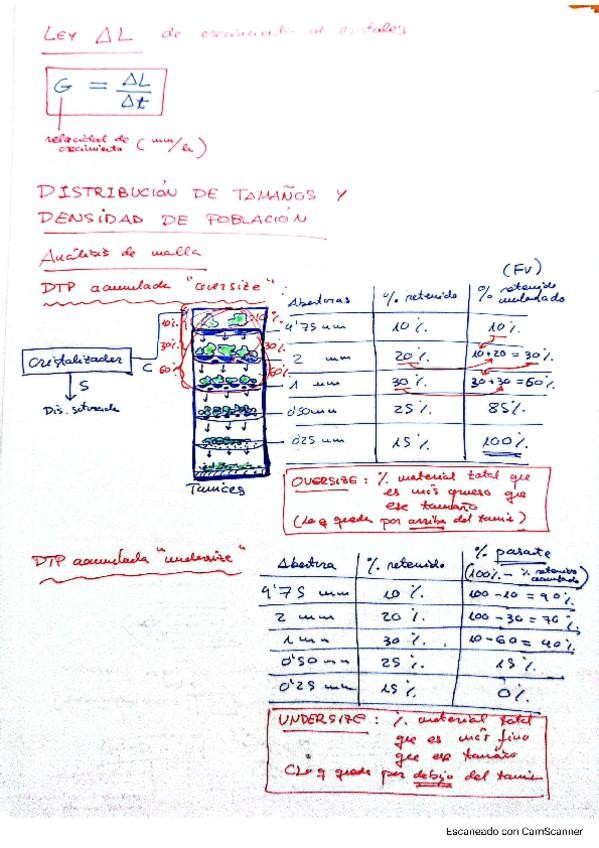 LEY ΔL de crecimiento de cristales
G = ΔL / Δt
velocidad de crecimiento (mm/h)
DISTRIBUCIÓN DE TAMAÑOS Y
DENSIDAD DE POBLACIÓN
Análisis de malla
DTP acumulada "oversize":
(FV)
Aberturas % retenido % retenido acumulado
4'75 mm 10% 10%
2 20% 10+20 = 30%
1 mm 30% 30+30 = 60%
0'50 mm 25% 85%
0'25 mm 15% 100%
10% 10%
30% 30%
60% 60%
Cristalizador
C
S
Dis. saturada
Tamices
OVERSIZE: % material total que
es más grueso que
ese tamaño
(Lo q queda por arriba del tamiz)
DTP acumulada "undersize"
Abertura % retenido % pasante
(100% - % retenido acumulado)
4'75 mm 10% 100-10 = 90%
2 mm 20% 100-30 = 70%
1 mm 30% 10-60 = 40%
0'50 mm 25% 15%
0'25 mm 15% 0%
UNDERSIZE: % material total
que es más fino
que ese tamaño
(Lo q queda por debajo del tamiz
Escaneado con CamScanner